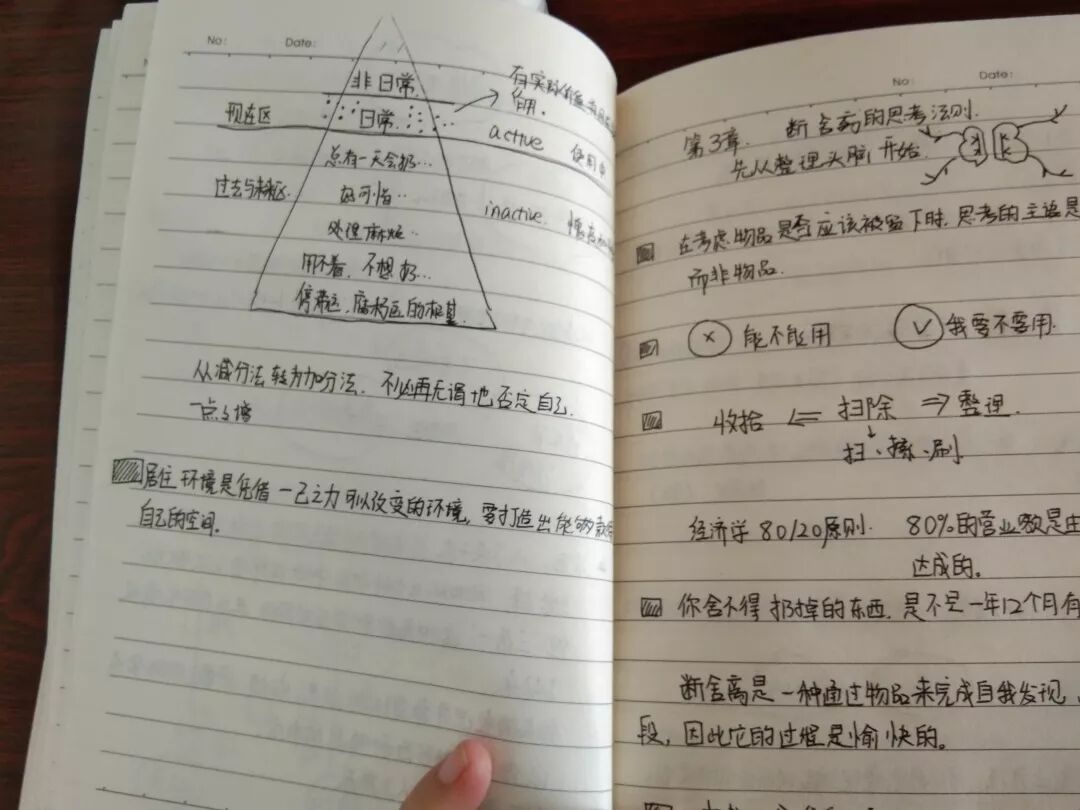 No: Date:
非日常
有实际价值
作用.
现在区
日常
active 使用中
总有一天会扔…
过去与未来区
好可惜..
inactive.
处理麻烦..
用不着, 不想扔…
停滞区, 腐朽区的根基.
从减分法转为加分法. 不必再无谓地否定自己.
一点之墙
居住环境是凭借一己之力可以改变的环境, 要打造出能够款待
自己的空间.
No: Date:
第3章. 断舍离的思考法则.
先从整理头脑开始.
在考虑物品是否应该被留下时, 思考的主语是
而非物品.
× 能不能用 √ 我要不要用.
收拾 ⇐ 扫除 ⇒ 整理.
↓
扫·擦·刷
经济学 80/20原则. 80%的营业额是由
达成的。
你舍不得扔掉的东西, 是不是一年12个月有
断舍离是一种通过物品来完成自我发现,
段, 因此它的过程是愉快的。